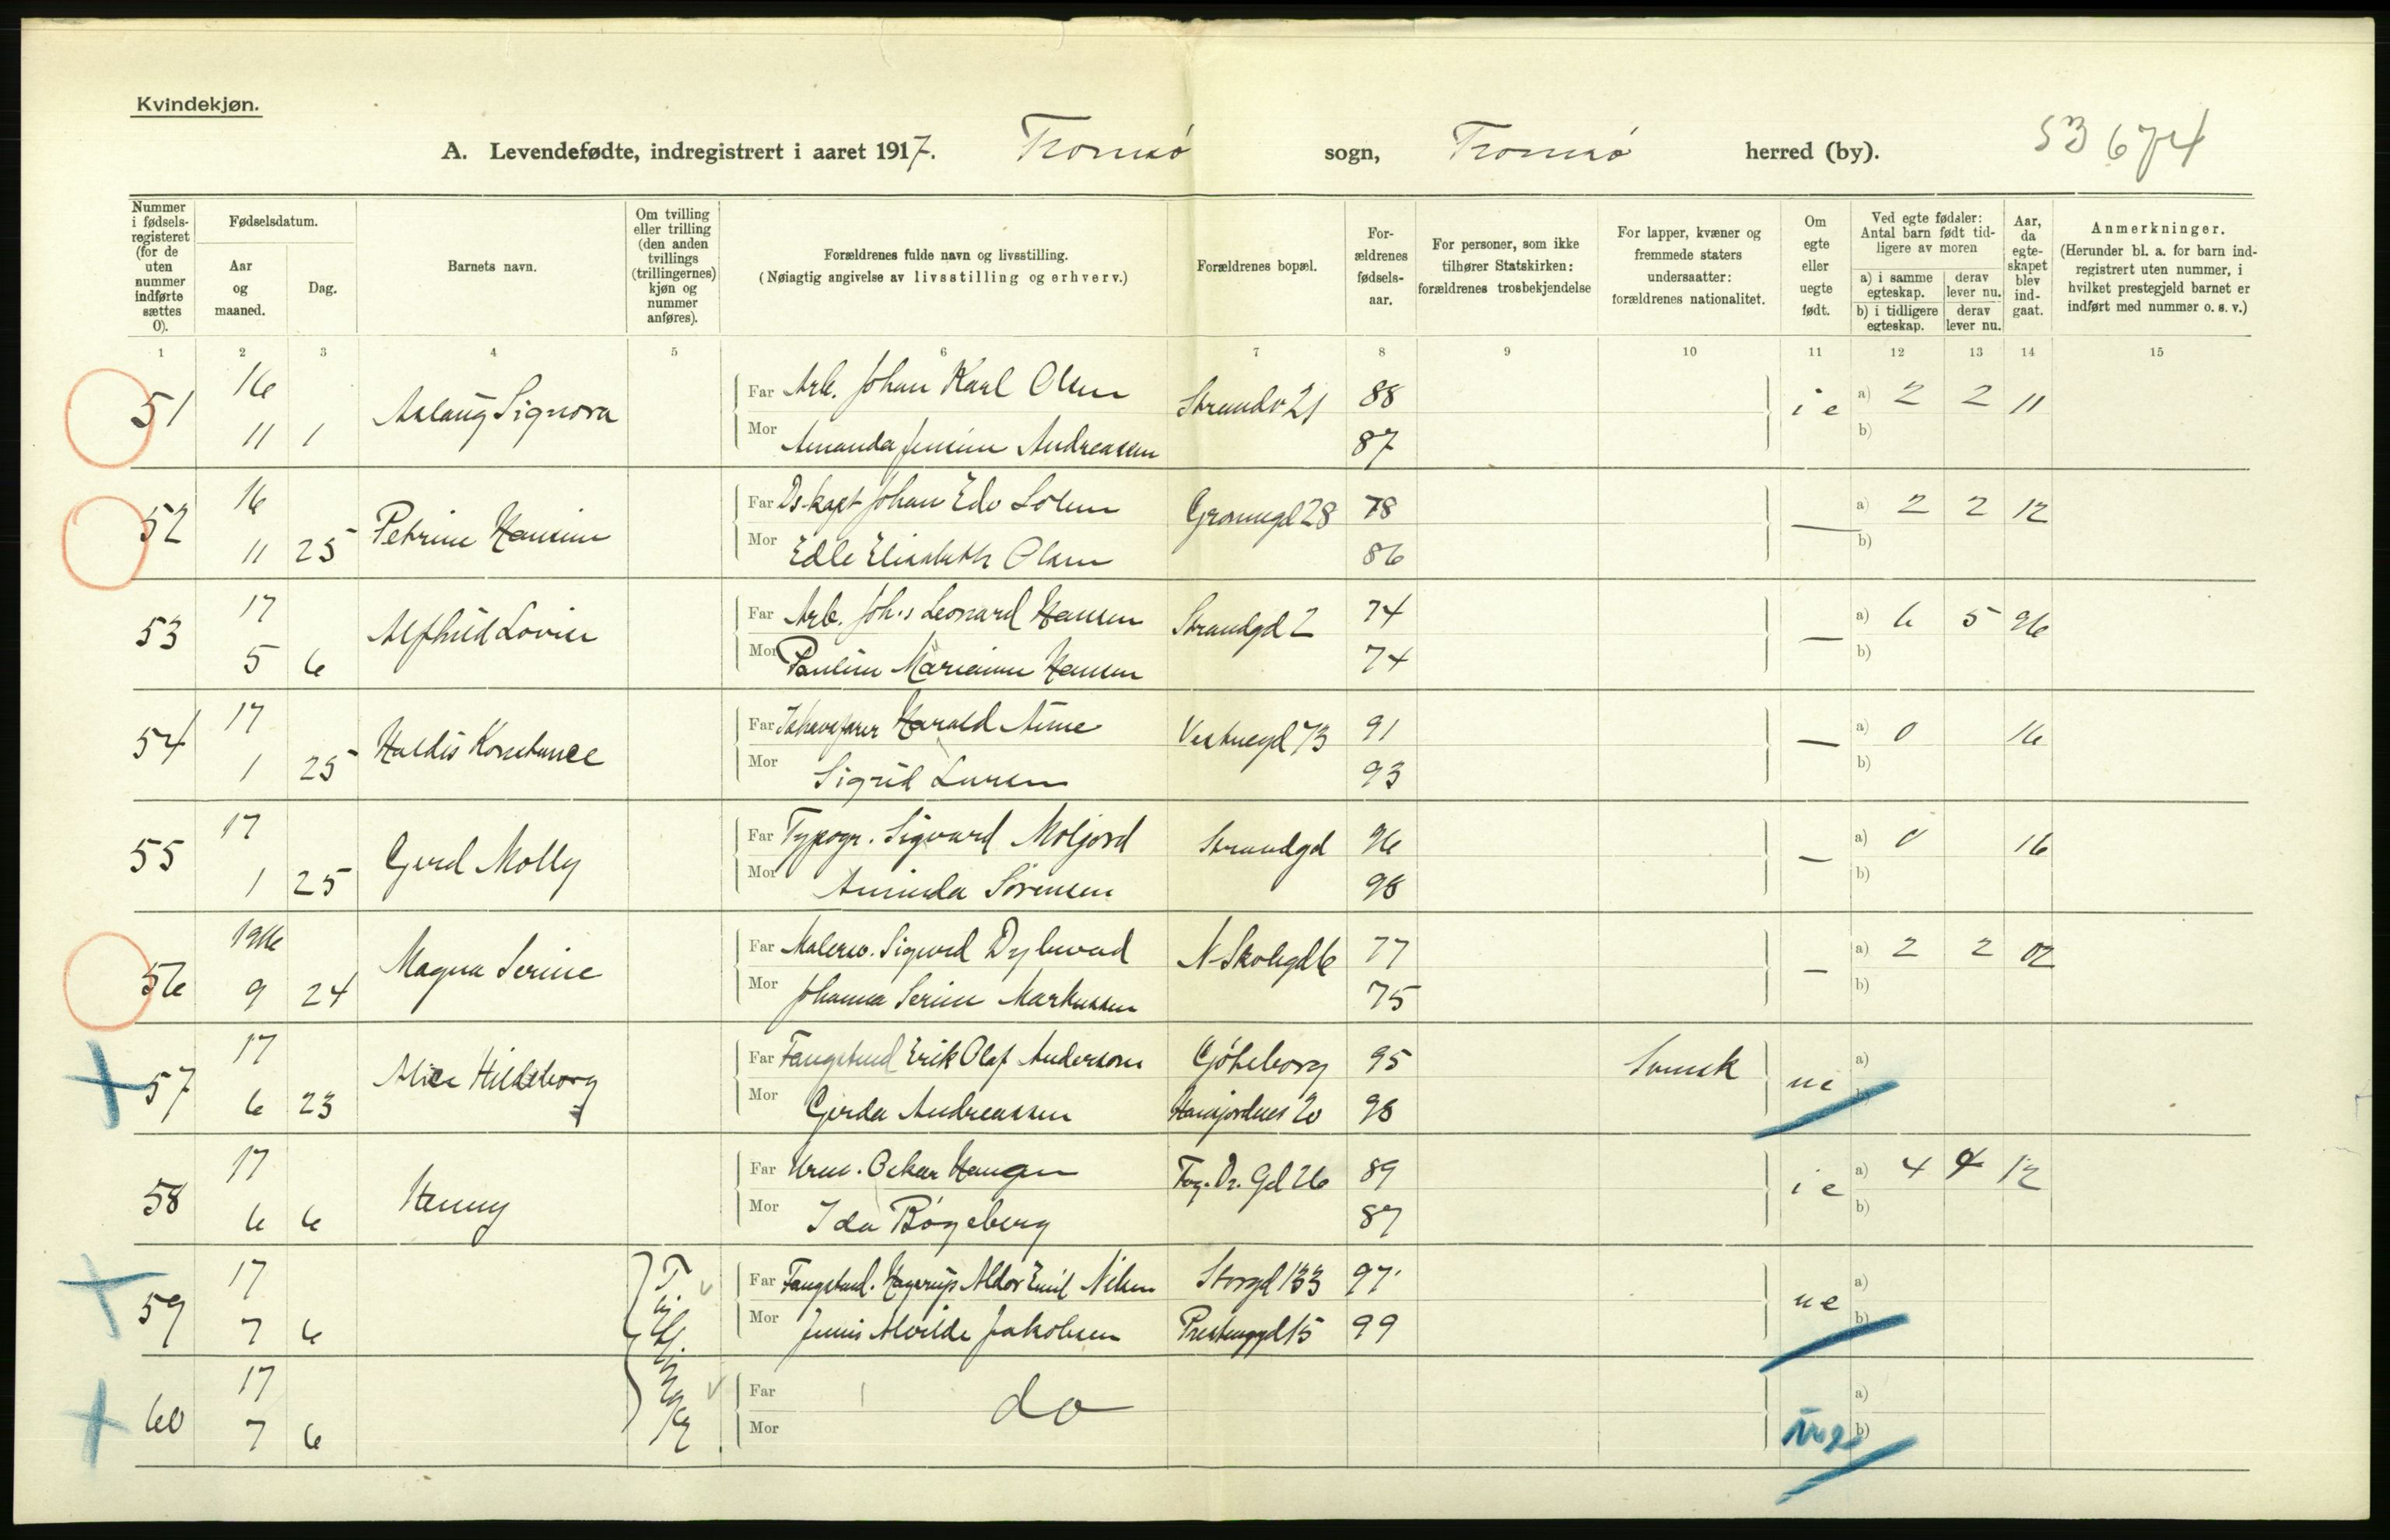 Kvindekjøn.
A. Levendefødte, indregistrert i aaret 1917. Tromsø sogn, Tromsø herred (by). 53 674
Nummer i fødsels-registeret (for de uten nummer indførte sættes 0).
Fødselsdatum.
Aar og maaned.
Dag.
Barnets navn.
Om tvilling eller trilling (den anden tvillings (trillingernes) kjøn og nummer anføres).
Forældrenes fulde navn og livsstilling.
(Nøiagtig angivelse av livsstilling og erhverv.)
Forældrenes bopæl.
For-ældrenes fødsels-aar.
For personer, som ikke tilhører Statskirken: forældrenes trosbekjendelse
For lapper, kvæner og fremmede staters undersaatter: forældrenes nationalitet.
Om egte eller uegte født.
Ved egte fødsler: Antal barn født tid-ligere av moren
a) i samme egteskap. derav lever nu.
b) i tidligere egteskap. derav lever nu.
Aar, da egte-skapet blev ind-gaat.
Anmerkninger.
(Herunder bl. a. for barn ind-registrert uten nummer, i hvilket prestegjeld barnet er indført med nummer o. s. v.)
1 2 3 4 5 6 7 8 9 10 11 12 13 14 15
51 16 11 1 Aslaug Signora
Far Arb. Johan Karl Olsen Strandv 21 88 i e a) 2 2 11
Mor Amanda Jensine Andreassen 87 b)
52 16 11 25 Petrine Hansine
Far Ds.kapt Johan Edv Grønnegd 28 78 — a) 2 2 12
Mor Edle Elisabeth Olsen 86 b)
53 17 5 6 Alfhild Lovise
Far Arb. Joh.s Leonard Hansen Strandgd 2 74 — a) 6 5 96
Mor Pauline Marianne Hansen 74 b)
54 17 1 25 Haldis Konstance
Far Ishavsfarer Harald Vestregd 73 91 — a) 0 16
Mor Sigrid Larsen 93 b)
55 17 1 25 Gerd Molly
Far Typogr. Sigvard Moljord Strandgd 96 — a) 0 16
Mor Aminda Sørensen 98 b)
56 1916 9 24 Magna Serine
Far Malersv. Sigurd N-Skolegd 6 77 — a) 2 2 02
Mor Johanna Serine Markussen 75 b)
57 17 6 23 Alice Hildeborg
Far Fangstmd Erik Olaf Anderson Gøteborg 95 Svensk ue a)
Mor Gerda Andreassen Hansjordnes 20 98 b)
58 17 6 6 Henny
Far Urm. Oskar Haugen Fog. Dr. Gd 26 89 i e a) 4 4 12
Mor Ida Bøgeberg 87 b)
59 17 7 6
Far Fangstmd. Hagerup Aldor Emil Nilsen Storgd 133 97 ue a)
Mor Jenis Alvilde Jakobsen Prestenggd 15 99 b)
60 17 7 6
Far do a)
Mor b)